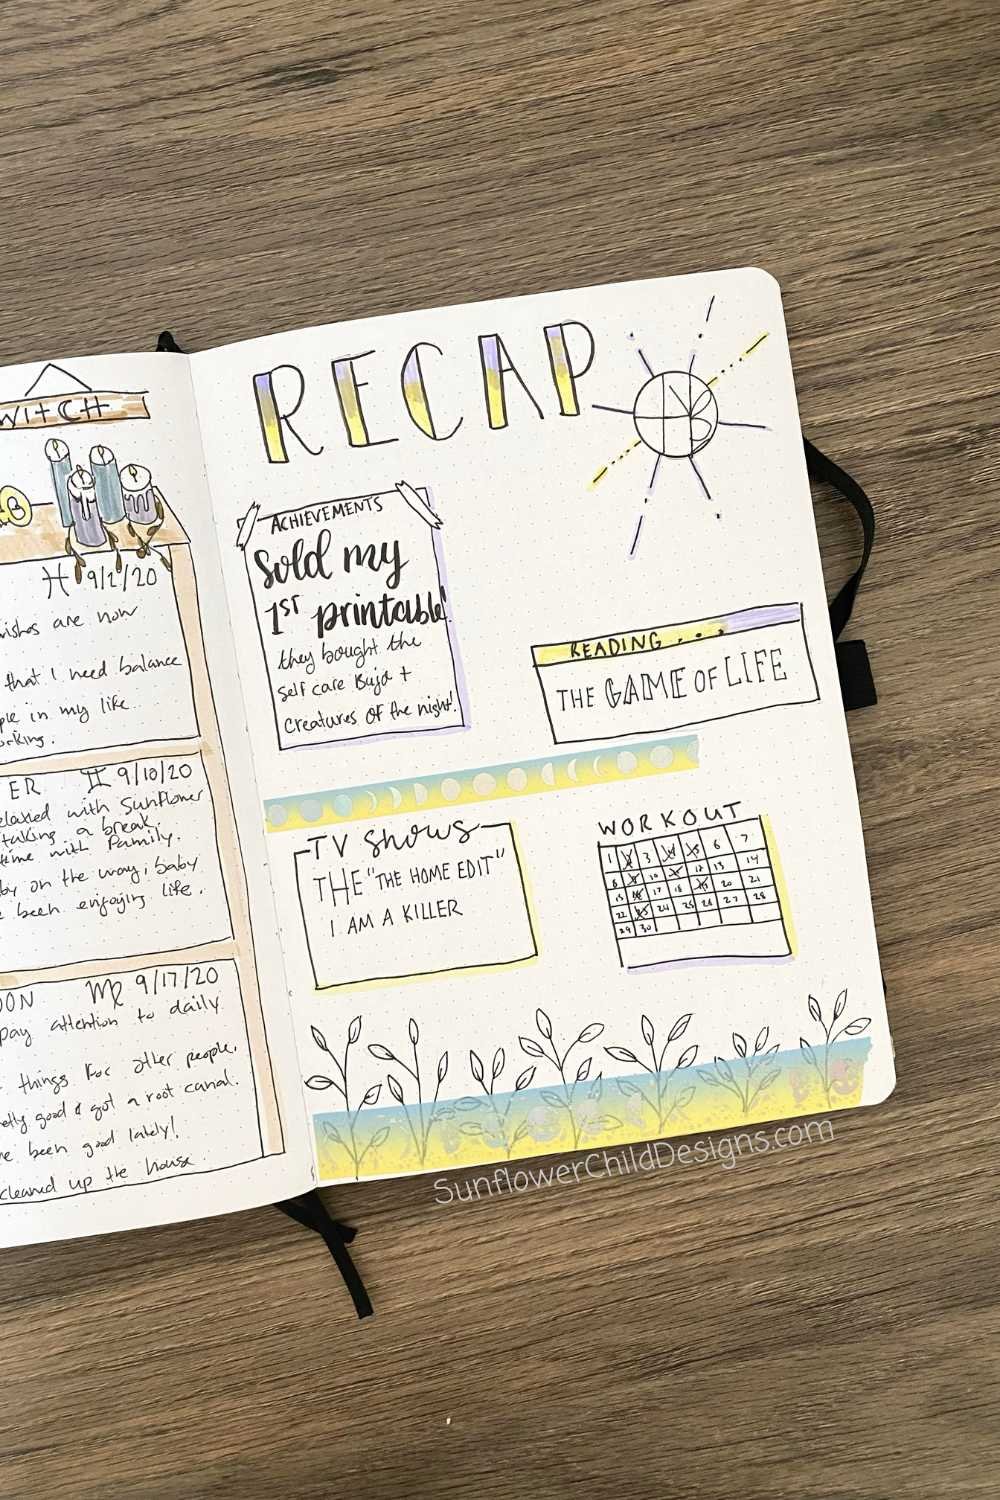 WITCH
9/2/20
wishes are now
that I need balance
in my life
9/10/20
relaxed with Sunflower
taking a break.
time with Family.
on the way, baby
been enjoying life.
9/17/20
pay attention to daily
things for other people.
good & got a root canal.
been good lately!
cleaned up the house
RECAP
ACHIEVEMENTS
Sold my
1ST printable!
they bought the
self care Bujo +
Creatures of the night!
READING...
THE GAME OF LIFE
TV Shows
THE "THE HOME EDIT"
I AM A KILLER
WORKOUT
1 3 6 7
8 10 12 13 14
15 17 18 20 21
22 24 25 26 27 28
29 30
SunflowerChildDesigns.com